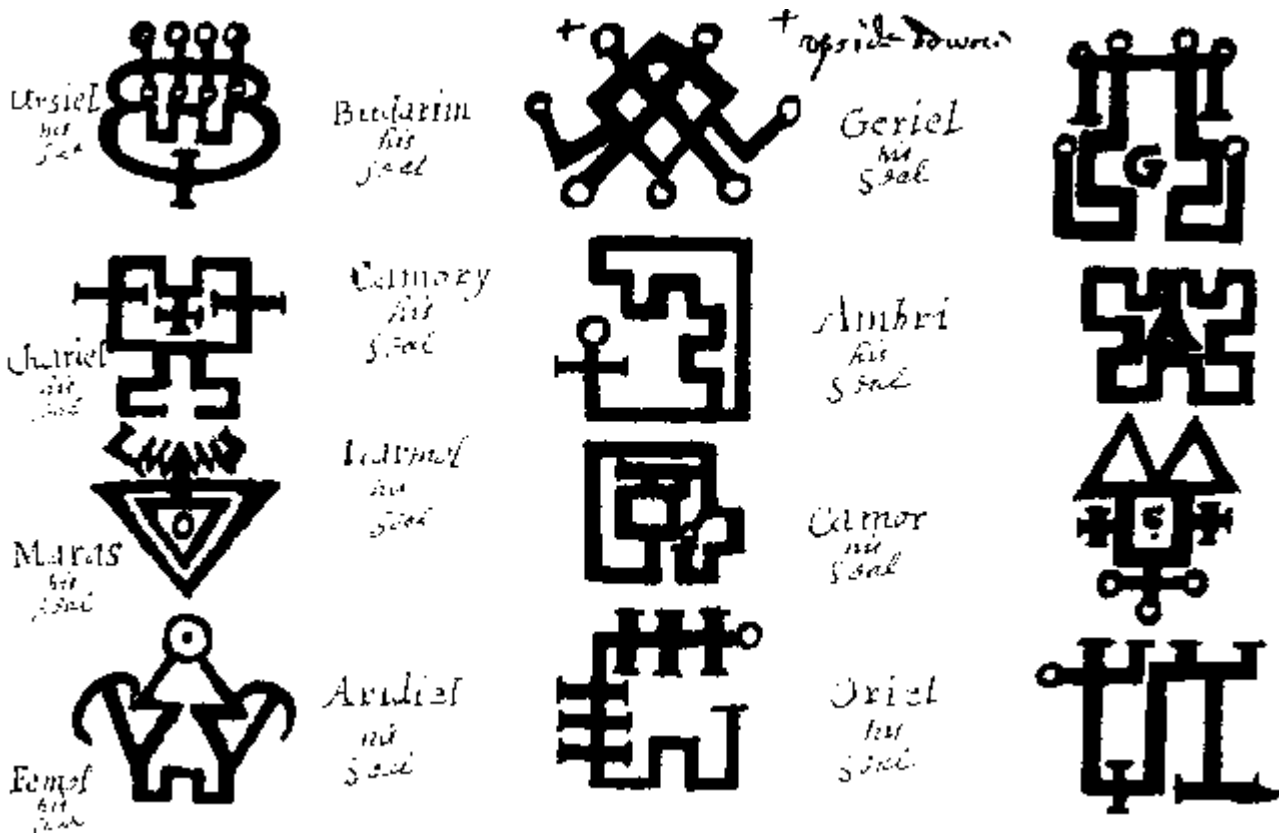 Ursiel
his
seal
Budarim
his
seal
+
+
upside down
Geriel
his
Seal
G
Chariel
his
seal
Camory
his
Seal
Ambri
his
Seal
A
Maras
his
seal
his
Seal
Camor
his
Seal
Femol
his
seal
Aridiel
his
Seal
Oriel
his
Seal